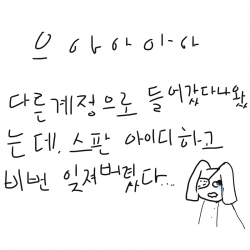 으 아아이아
다른계정으로 들어갔다나왔
는데, 스판 아이디하고
비번 잊져버렸다...